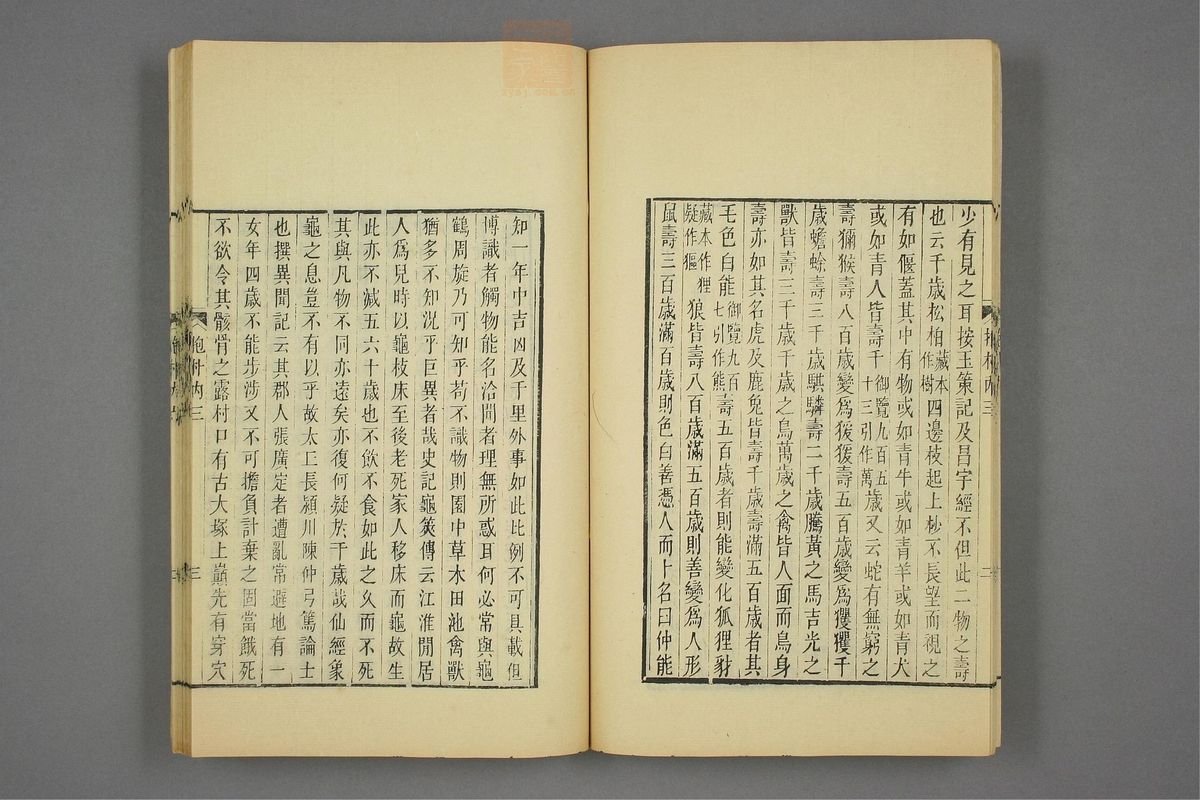 少有見之耳按玉策記及昌宇經不但此二物之壽
也云千歲松柏藏本作樹四邊枝起上杪不長望而視之
有如偃蓋其中有物或如青牛或如青羊或如青犬
或如青人皆壽千御覽九百五十三引作萬歲又云蛇有無窮之
壽獼猴壽八百歲變為猨猨壽五百歲變為玃玃千
歲蟾蜍壽三千歲騏驎壽二千歲騰黃之馬吉光之
獸皆壽三千歲千歲之鳥萬歲之禽皆人面而鳥身
壽亦如其名虎及鹿兔皆壽千歲壽滿五百歲者其
毛色白能御覽九百七引作熊壽五百歲者則能變化狐狸豺
藏本作狸疑作貙狼皆壽八百歲滿五百歲則善變為人形
鼠壽三百歲滿百歲則色白善憑人而卜名曰仲能
抱朴內三
二
知一年中吉凶及千里外事如此比例不可具載但
博識者觸物能名洽聞者理無所惑耳何必常與龜
鶴周旋乃可知乎苟不識物則園中草木田池禽獸
猶多不知況乎巨異者哉史記龜筴傳云江淮閒居
人為兒時以龜枝床至後老死家人移床而龜故生
此亦不減五六十歲也不飲不食如此之久而不死
其與凡物不同亦遠矣亦復何疑於千歲哉仙經象
龜之息豈不有以乎故太丘長潁川陳仲弓篤論士
也撰異聞記云其郡人張廣定者遭亂常避地有一
女年四歲不能步涉又不可擔負計棄之固當餓死
不欲令其骸骨之露村口有古大塚上巔先有穿穴
抱朴內三
三